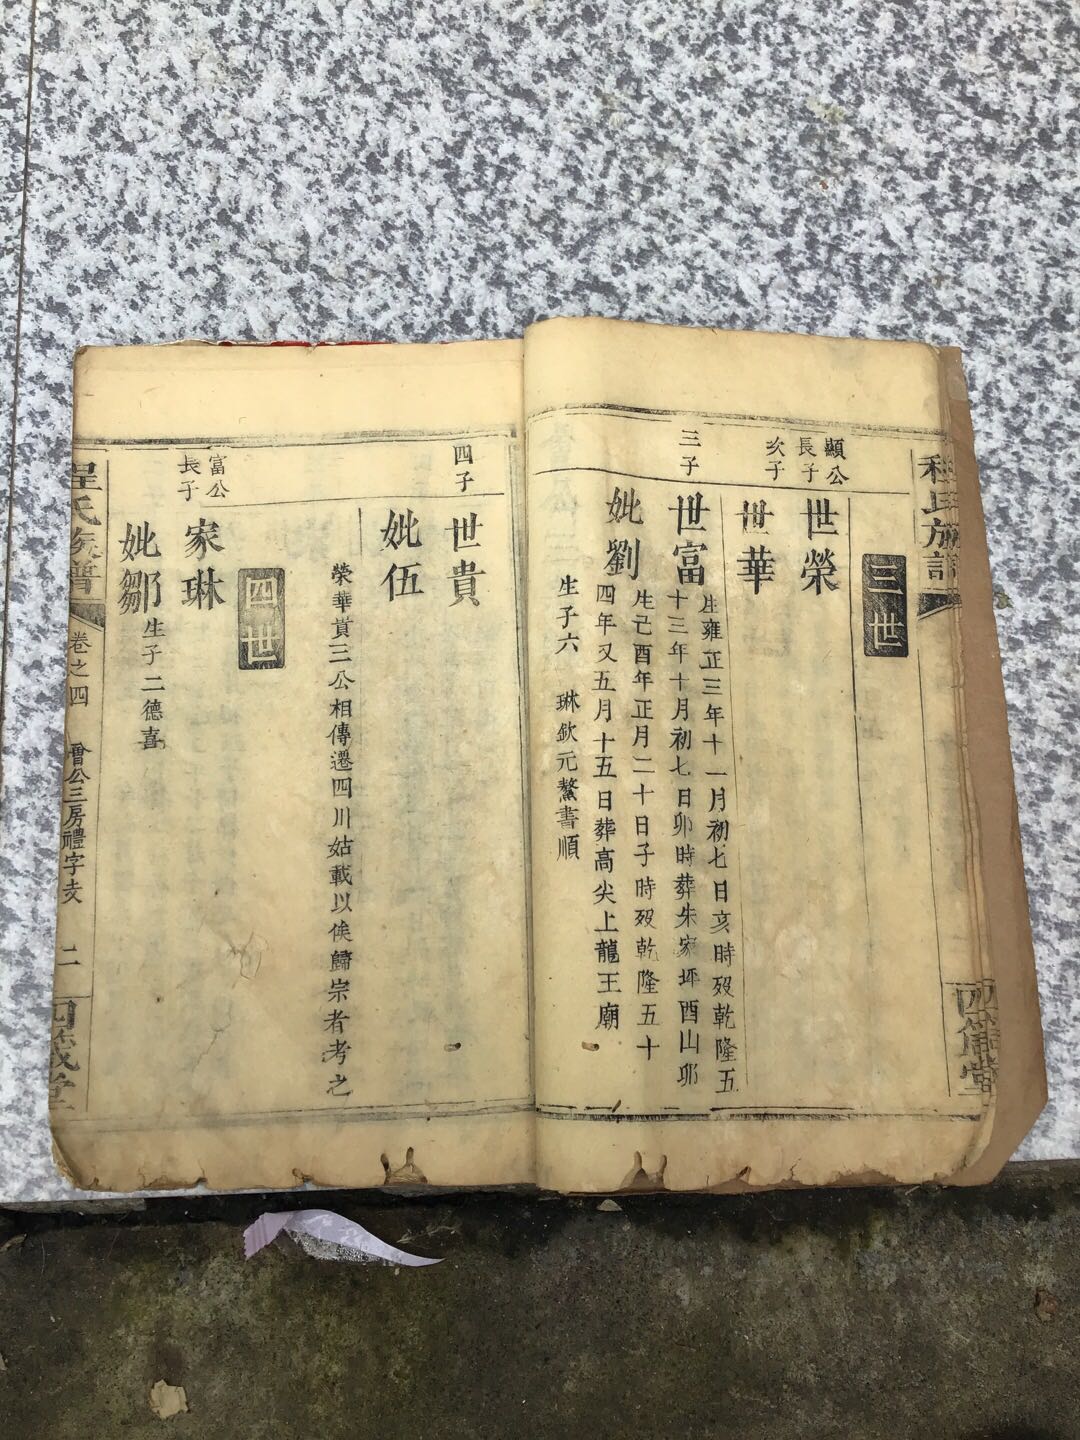 程氏族譜
四箴堂
三世
顯公
長子
世榮
次子
世華
三子
世富
生雍正三年十一月初七日亥時殁乾隆五
十三年十月初七日卯時葬朱家坪酉山卯
妣劉
生己酉年正月二十日子時殁乾隆五十
四年又五月十五日葬高尖上龍王廟
生子六 琳欽元鰲書順
四子
世貴
妣伍
榮華貰三公相傳遷四川姑載以俟歸宗者考之
四世
富公
長子
家琳
妣鄒
生子二德喜
程氏族譜
卷之四
曾公三房禮字支
二
四箴堂